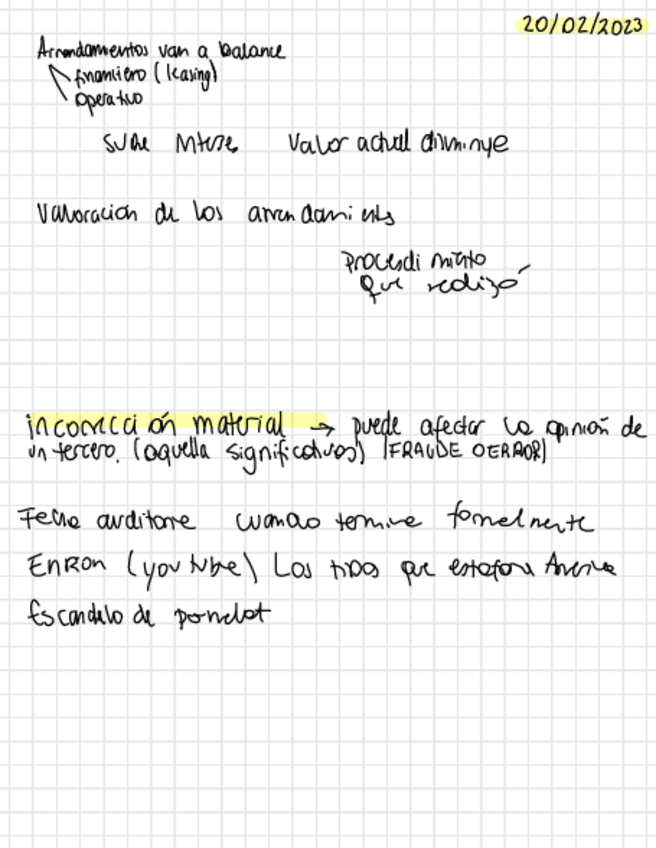 20/02/2023
Arrendamientos van a balance
financiero (leasing)
operativo
sube interes valor actual disminuye
Valoración de los arrendamientos
Procedimiento
que realizó
incorrección material → puede afectar la opinión de
un tercero. (aquella significativas) (FRAUDE O ERROR)
Fecha cuando termine formalmente
ENRON (youtube) Los tipos que estafaron America
Escandalo de